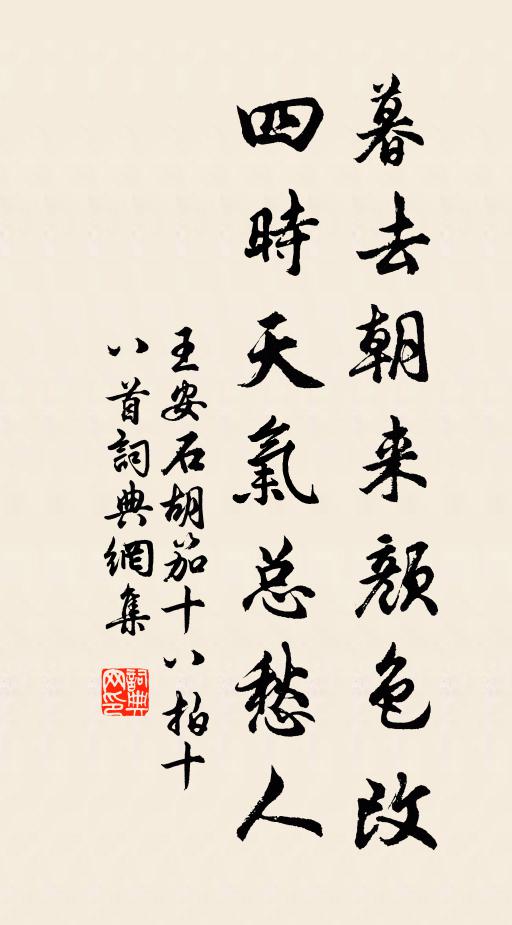 暮去朝来顔色改
四時天氣总愁人
王安石胡笳十八拍十
八首詞典網集
詞典
网印